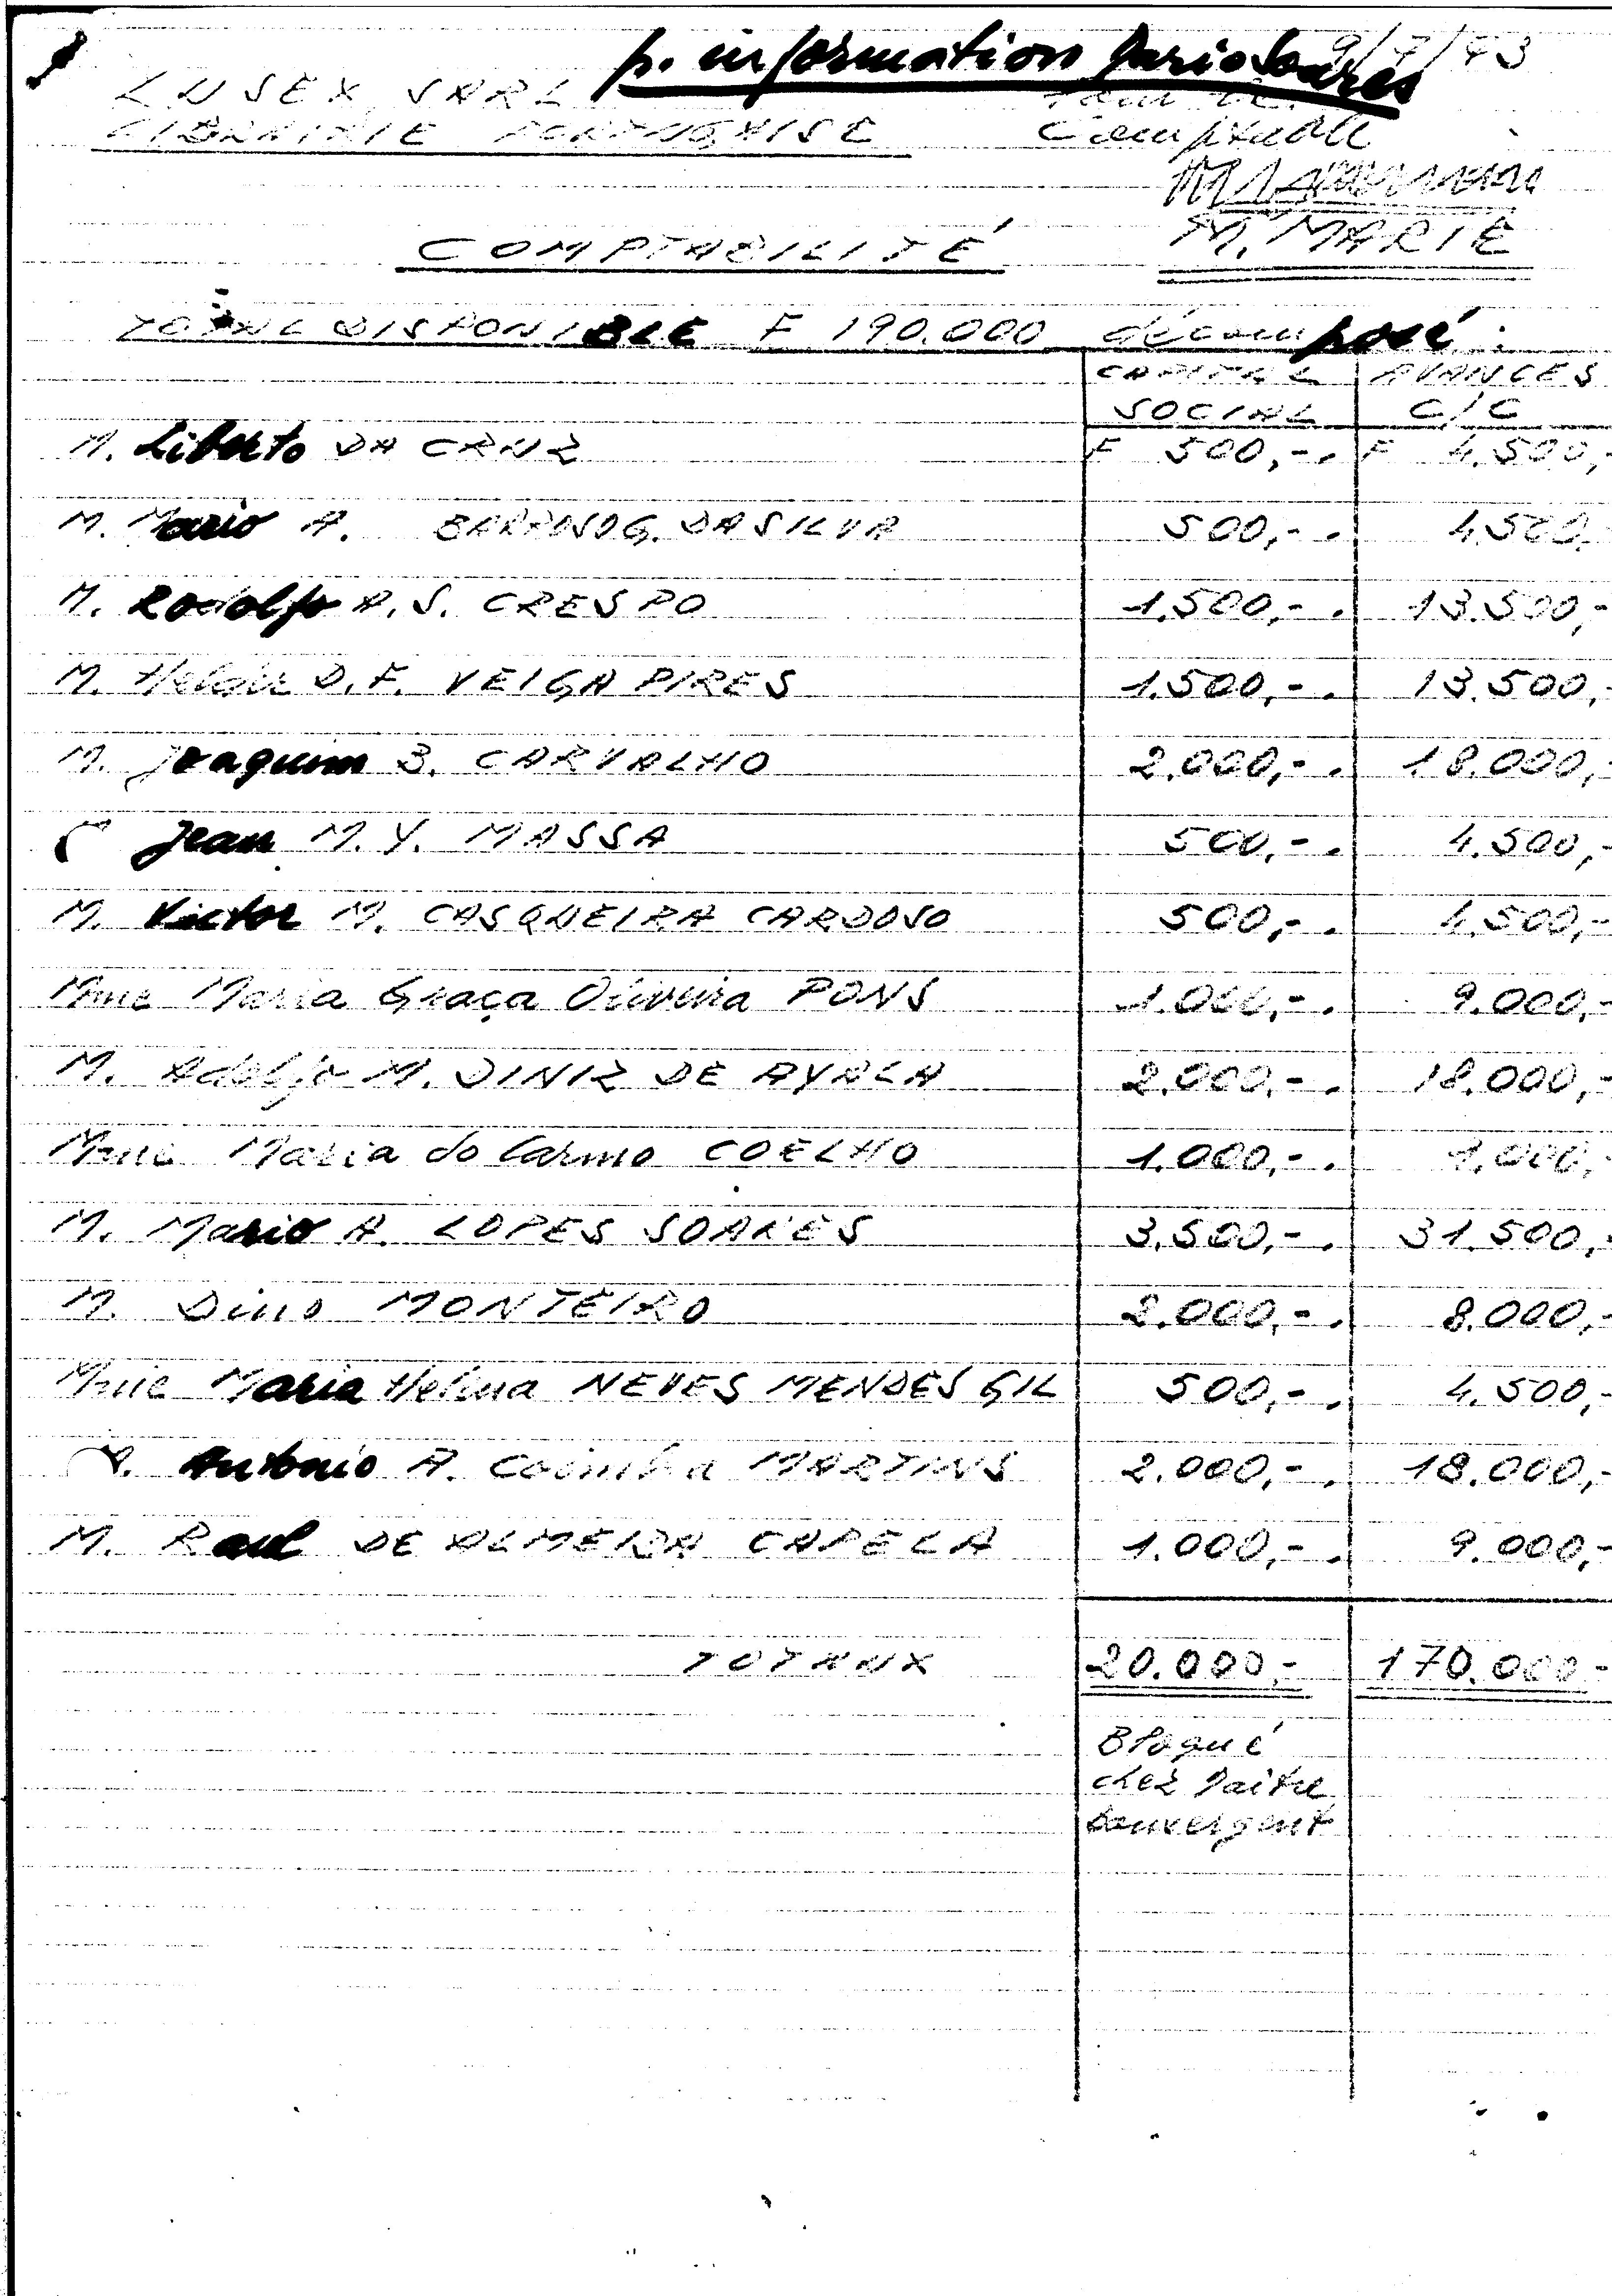 p. information Mario Soares 9/7/73
LUSEX SARL Pour le
LIBRAIRIE PORTUGAISE Comptable
M. MARIE
COMPTABILITÉ
TOTAL DISPONIBLE F 190.000 décomposé :
CAPITAL AVANCES
SOCIAL C/C
M. Liberto DA CRUZ F 500,- . F 4.500,-
M. Mario A. BARROSO G. DA SILVA 500,- . 4.500,-
M. Rodolfo A.S. CRESPO 1.500,- . 13.500,-
M. Helder D.F. VEIGA PIRES 1.500,- . 13.500,-
M. Joaquim B. CARVALHO 2.000,- . 18.000,-
Jean M.Y. MASSA 500,- . 4.500,-
M. Victor M. CASQUEIRA CARDOSO 500,- . 4.500,-
Mme Maria Graça Oliveira PONS 1.000,- . 9.000,-
M. Adolfo M. DINIZ DE AYALA 2.000,- . 18.000,-
Mme Maria do Carmo COELHO 1.000,- . 9.000,-
M. Mario A. LOPES SOARES 3.500,- . 31.500,-
M. Dino MONTEIRO 2.000,- . 8.000,-
Mme Maria Helena NEVES MENDES GIL 500,- . 4.500,-
M. Antonio A. Coimbra MARTINS 2.000,- . 18.000,-
M. Raul DE ALMEIDA CAPELA 1.000,- . 9.000,-
TOTAUX 20.000,- 170.000,-
Bloqué
chez Maitre
Sauvergent